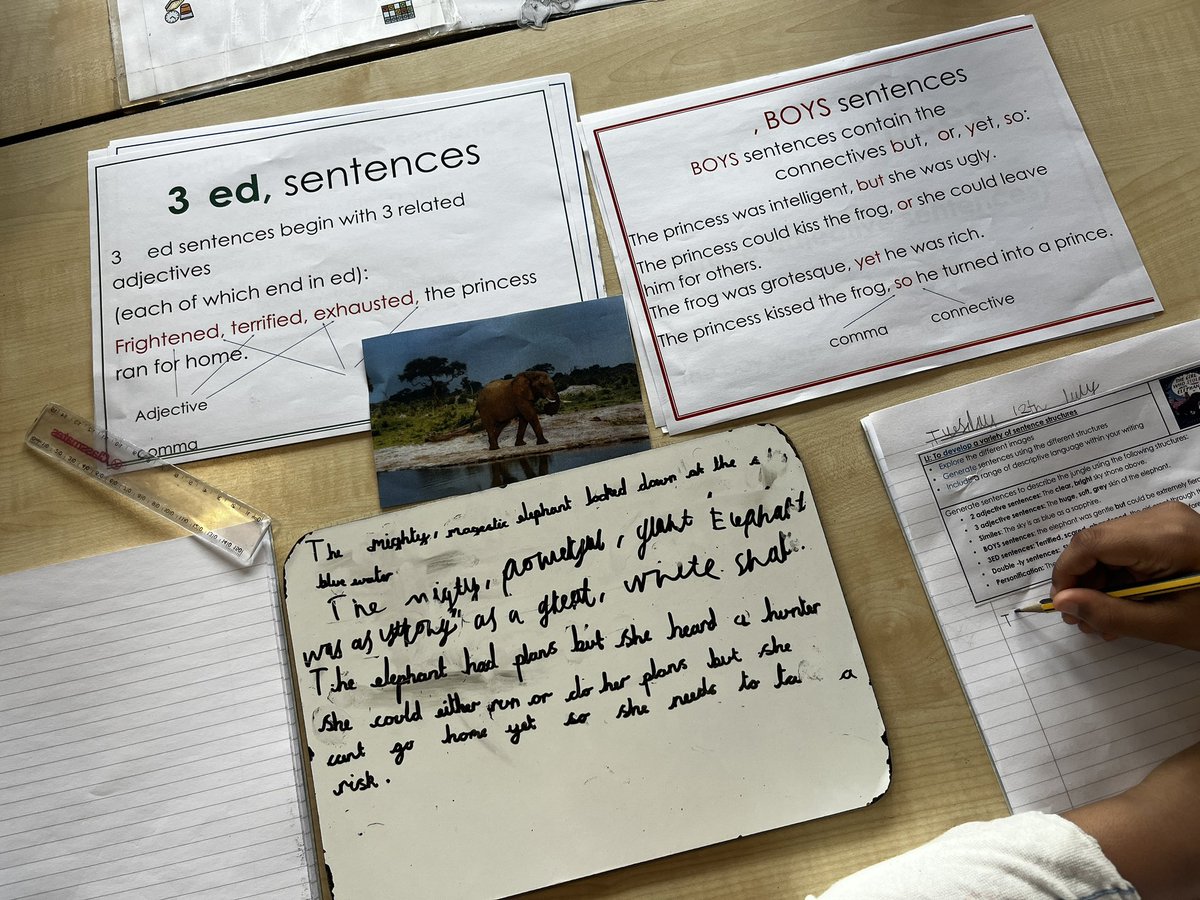 3 ed, sentences
3 ed sentences begin with 3 related
adjectives
(each of which end in ed):
Frightened, terrified, exhausted, the princess
ran for home.
Adjective
comma
, BOYS sentences
BOYS sentences contain the
connectives but, or, yet, so:
The princess was intelligent, but she was ugly.
The princess could kiss the frog, or she could leave
him for others.
The frog was grotesque, yet he was rich.
The princess kissed the frog, so he turned into a prince.
comma connective
The mighty, magestic elephant looked down at the
blue water
The migty, powerful, giant Elephant
was as "strong" as a great, white shak.
The elephant had plans but she heard a hunter
she could either run or do her plans but she
cant go home yet so she needs to ta a
risk.
Tuesday 12th July
LI: To develop a variety of sentence structures
Explore the different images
Generate sentences using the different structures
Include a range of descriptive language within your writing
Generate sentences to describe the jungle using the following structures:
2 adjective sentences: The clear, bright sky shone above.
3 adjective sentences: The huge, soft, grey skin of the elephant.
Similes: The sky is as blue as a sapphire.
BOYS sentences: the elephant was gentle but could be extremely
3ED sentences: Terrified,
Double -ly sentences:
Personification: The
T